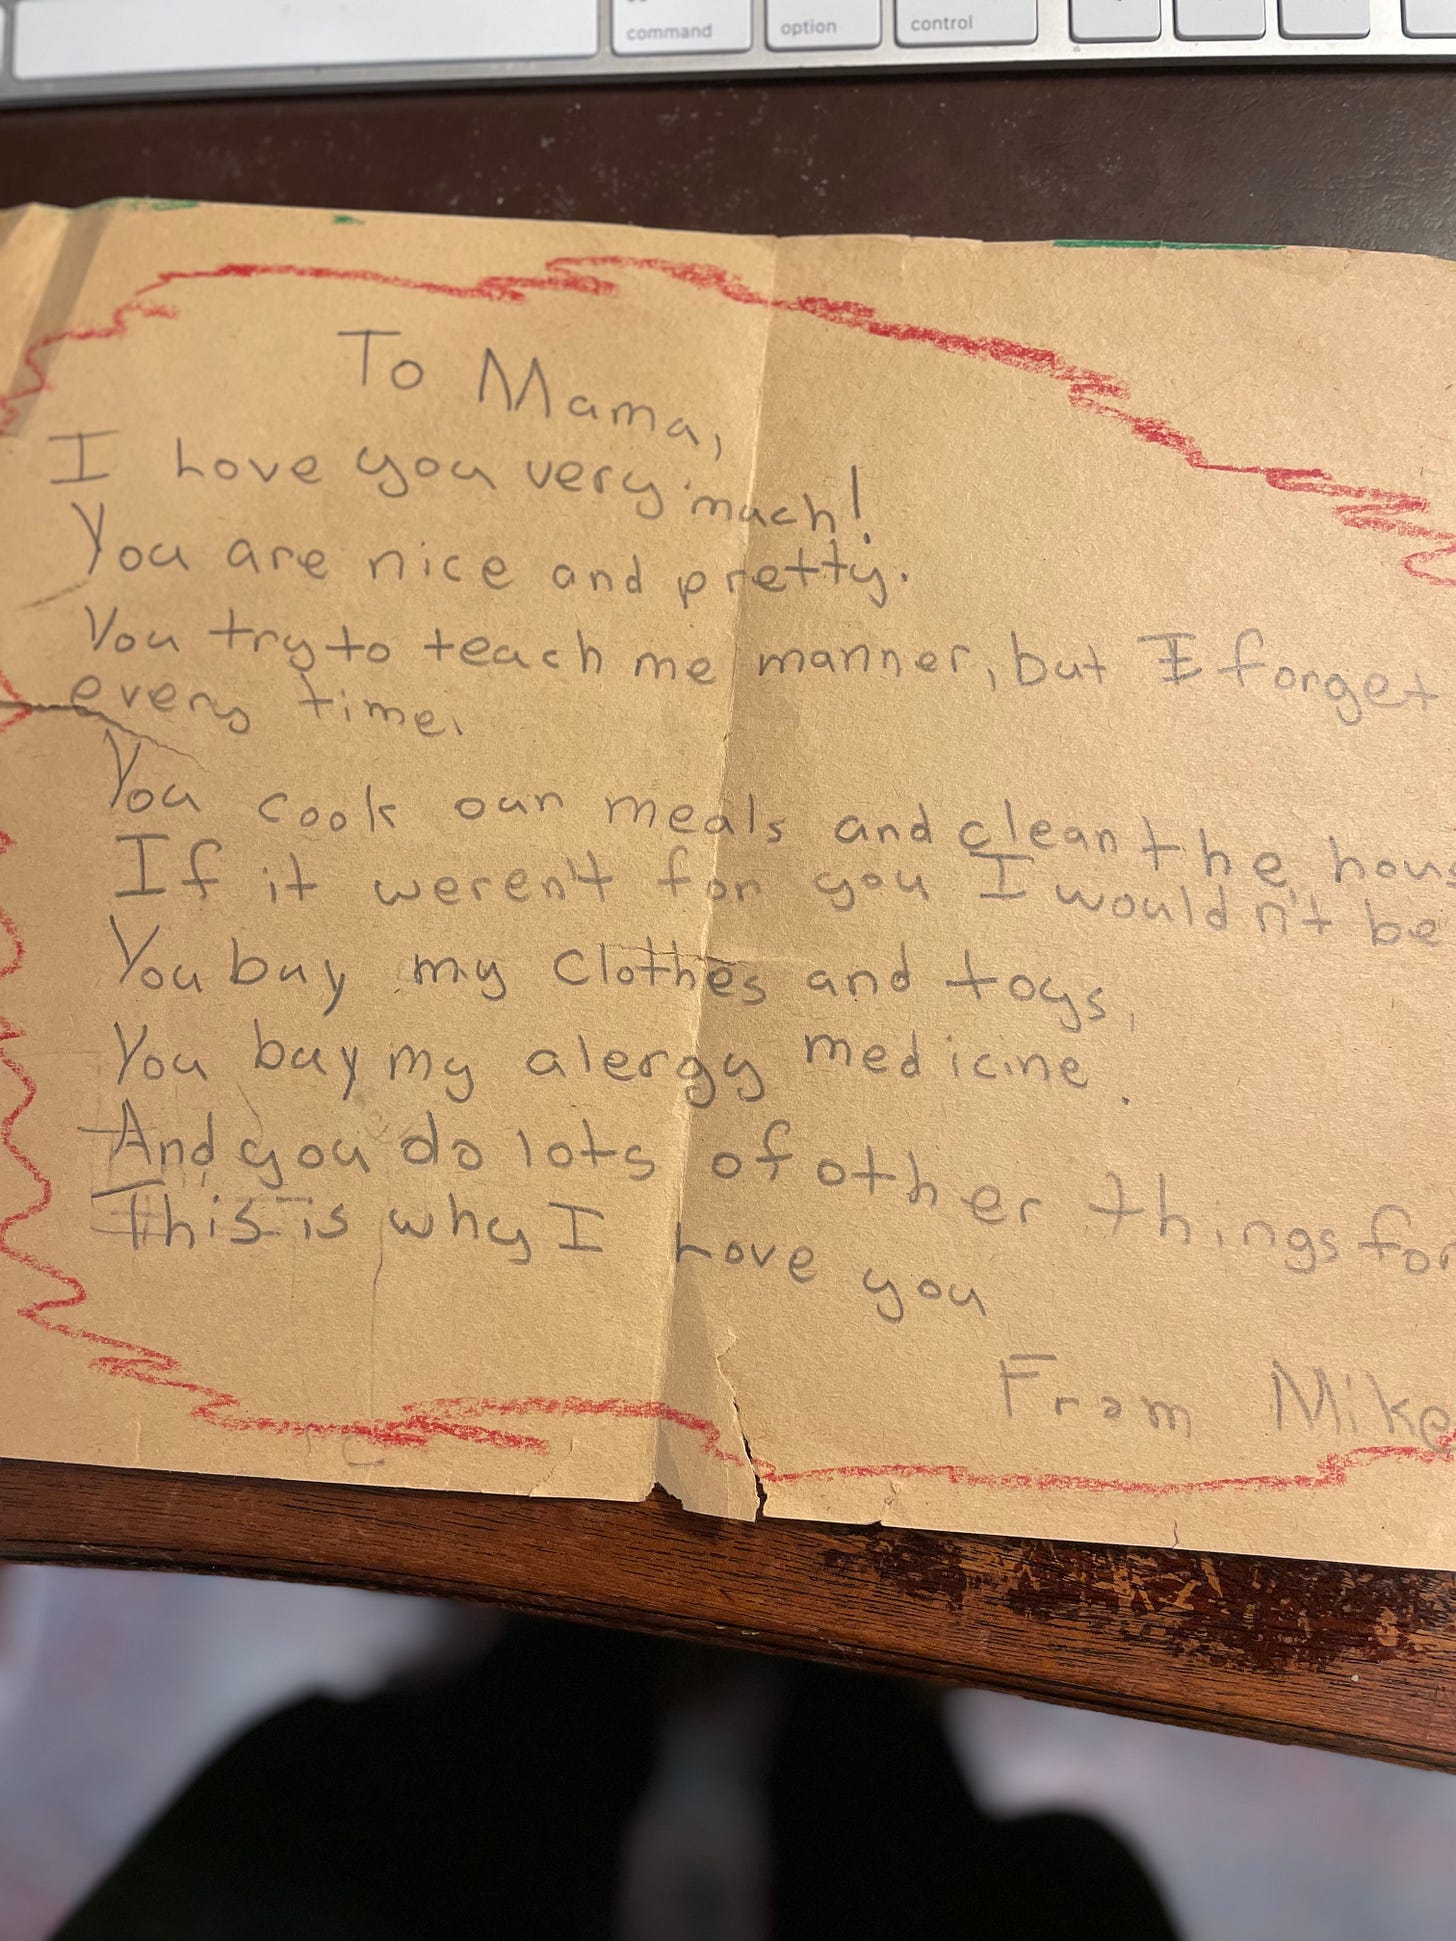 command option control
To Mama,
I Love you very much!
You are nice and pretty.
You try to teach me manner, but I forget
every time.
You cook our meals and clean the hous
If it weren't for you I wouldn't be
You buy my clothes and toys.
You buy my alergy medicine.
And you do lots of other things for
This is why I Love you
From Mike